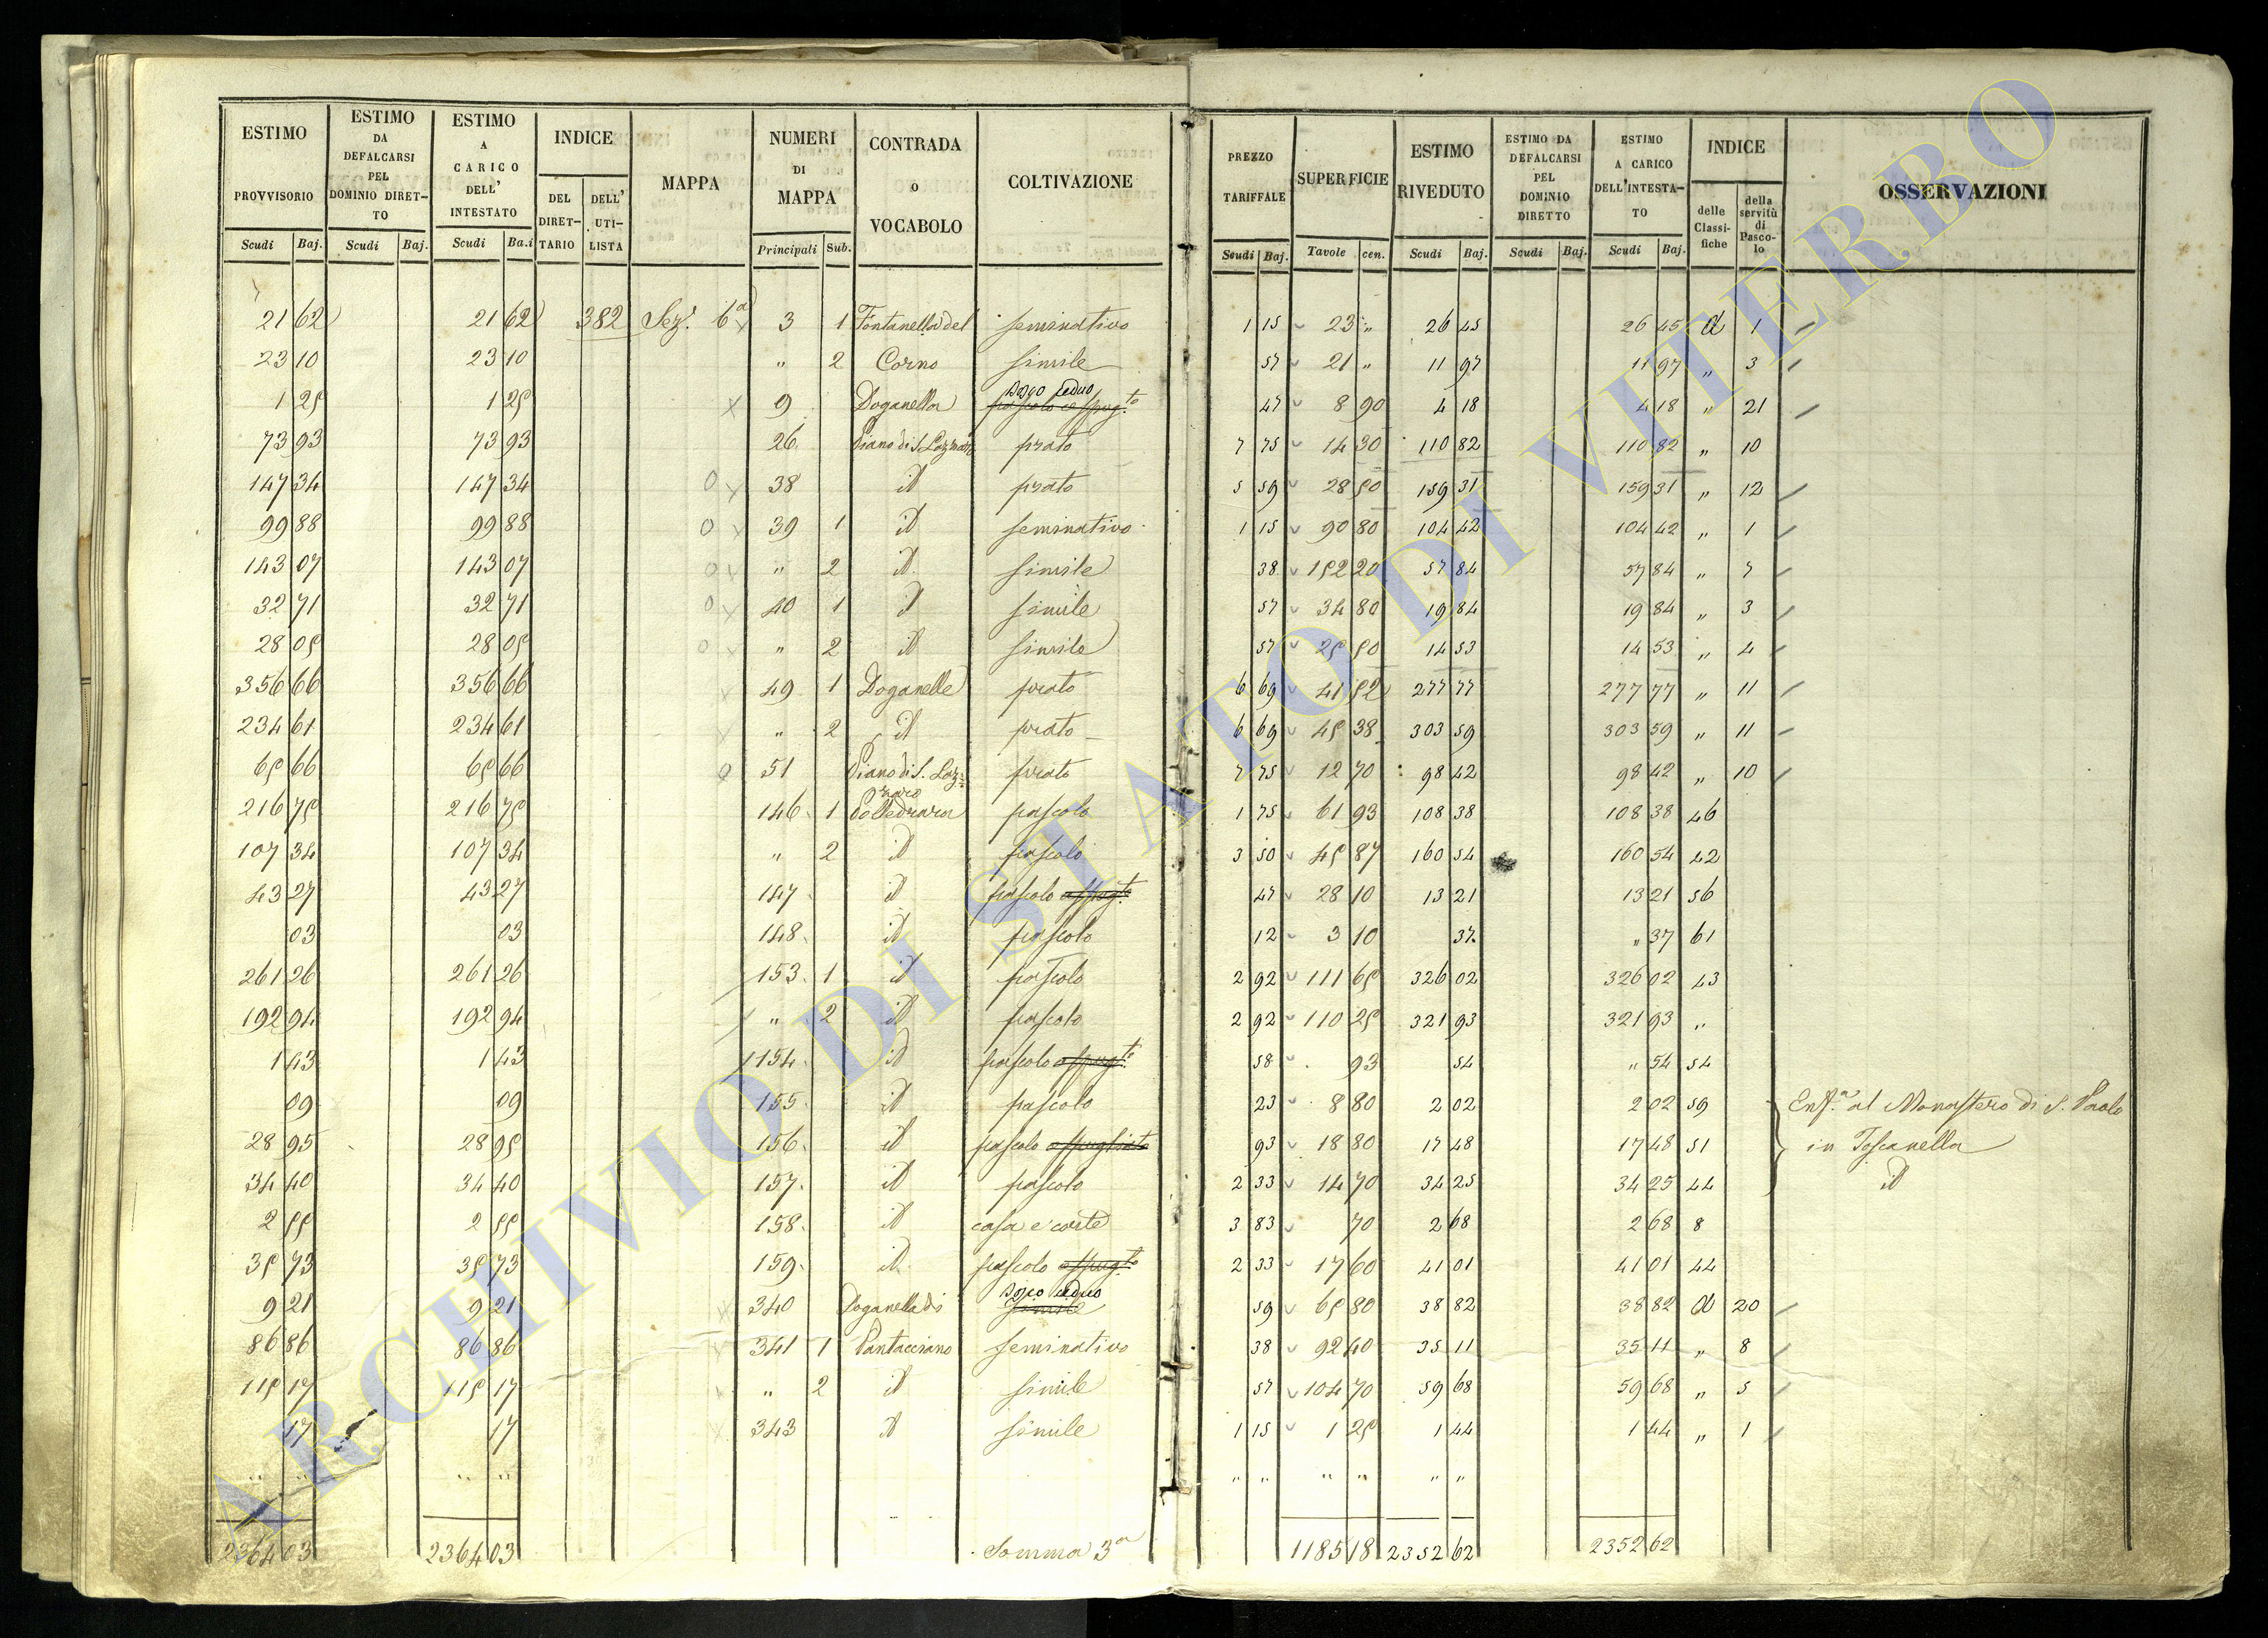 ESTIMO PROVVISORIO | ESTIMO DA DEFALCARSI PEL DOMINIO DIRETTO | ESTIMO A CARICO DELL' INTESTATO | INDICE DEL DIRETTARIO | DELL' UTILISTA | MAPPA | NUMERI DI MAPPA | CONTRADA O VOCABOLO | COLTIVAZIONE | PREZZO TARIFFALE | SUPERFICIE | ESTIMO RIVEDUTO | ESTIMO DA DEFALCARSI PEL DOMINIO DIRETTO | ESTIMO A CARICO DELL'INTESTATO | INDICE delle Classifiche | della servitù di Pascolo | OSSERVAZIONI
Scudi Baj. | Scudi Baj. | Scudi Ba.i | Principali Sub. | Scudi Baj. | Tavole cen. | Scudi Baj. | Scudi Baj. | Scudi Baj.
21 62 | 21 62 | 382 | Sez. 6a | 3 | 1 | Fontanella del | seminativo | 1 15 | 23 „ | 26 45 | 26 45 | d | 1
23 10 | 23 10 | „ | 2 | Corno | simile | 57 | 21 „ | 11 97 | 11 97 | „ | 3
1 25 | 1 25 | 9 | Doganella | bosco ceduo | 47 | 8 90 | 4 18 | 4 18 | „ | 21
73 93 | 73 93 | 26 | Piano di S. Lazzaro | prato | 7 75 | 14 30 | 110 82 | 110 82 | „ | 10
147 34 | 147 34 | 38 | id | prato | 5 59 | 28 50 | 159 31 | 159 31 | „ | 12
99 88 | 99 88 | 39 | 1 | id | seminativo | 1 15 | 90 80 | 104 42 | 104 42 | „ | 1
143 07 | 143 07 | „ | 2 | id | simile | 38 | 152 20 | 57 84 | 57 84 | „ | 7
32 71 | 32 71 | 40 | 1 | id | simile | 57 | 34 80 | 19 84 | 19 84 | „ | 3
28 05 | 28 05 | „ | 2 | id | simile | 57 | 25 50 | 14 53 | 14 53 | „ | 4
356 66 | 356 66 | 49 | 1 | Doganelle | prato | 6 69 | 41 52 | 277 77 | 277 77 | „ | 11
234 61 | 234 61 | „ | 2 | id | prato | 6 69 | 45 38 | 303 59 | 303 59 | „ | 11
65 66 | 65 66 | 51 | Piano di S. Lazzaro | prato | 7 75 | 12 70 | 98 42 | 98 42 | „ | 10
216 75 | 216 75 | 146 | 1 | Polledrara | pascolo | 1 75 | 61 93 | 108 38 | 108 38 | 46
107 34 | 107 34 | „ | 2 | id | pascolo | 3 50 | 45 87 | 160 54 | 160 54 | 42
43 27 | 43 27 | 147 | id | pascolo | 47 | 28 10 | 13 21 | 13 21 | 56
03 | 03 | 148 | id | pascolo | 12 | 3 10 | 37 | „ 37 | 61
261 26 | 261 26 | 153 | 1 | id | pascolo | 2 92 | 111 65 | 326 02 | 326 02 | 43
192 94 | 192 94 | „ | 2 | id | pascolo | 2 92 | 110 25 | 321 93 | 321 93 | „
1 43 | 1 43 | 154 | id | pascolo | 58 | 93 | 54 | „ 54 | 54
09 | 09 | 155 | id | pascolo | 23 | 8 80 | 2 02 | 2 02 | 59 | Enf.a al Monastero di S. Paolo
28 95 | 28 95 | 156 | id | pascolo | 93 | 18 80 | 17 48 | 17 48 | 51 | in Toscanella
34 40 | 34 40 | 157 | id | pascolo | 2 33 | 14 70 | 34 25 | 34 25 | 44 | id
2 55 | 2 55 | 158 | id | casa e corte | 3 83 | 70 | 2 68 | 2 68 | 8
35 73 | 35 73 | 159 | id | pascolo | 2 33 | 17 60 | 41 01 | 41 01 | 44
9 21 | 9 21 | 340 | Doganella di | bosco ceduo | 59 | 65 80 | 38 82 | 38 82 | d | 20
86 86 | 86 86 | 341 | 1 | Pantacciano | seminativo | 38 | 92 40 | 35 11 | 35 11 | „ | 8
115 17 | 115 17 | „ | 2 | id | simile | 57 | 104 70 | 59 68 | 59 68 | „ | 5
17 | 17 | 343 | id | simile | 1 15 | 1 25 | 1 44 | 1 44 | „ | 1
2364 03 | 2364 03 | Somma 3a | 1185 18 | 2352 62 | 2352 62
ARCHIVIO DI STATO DI VITERBO